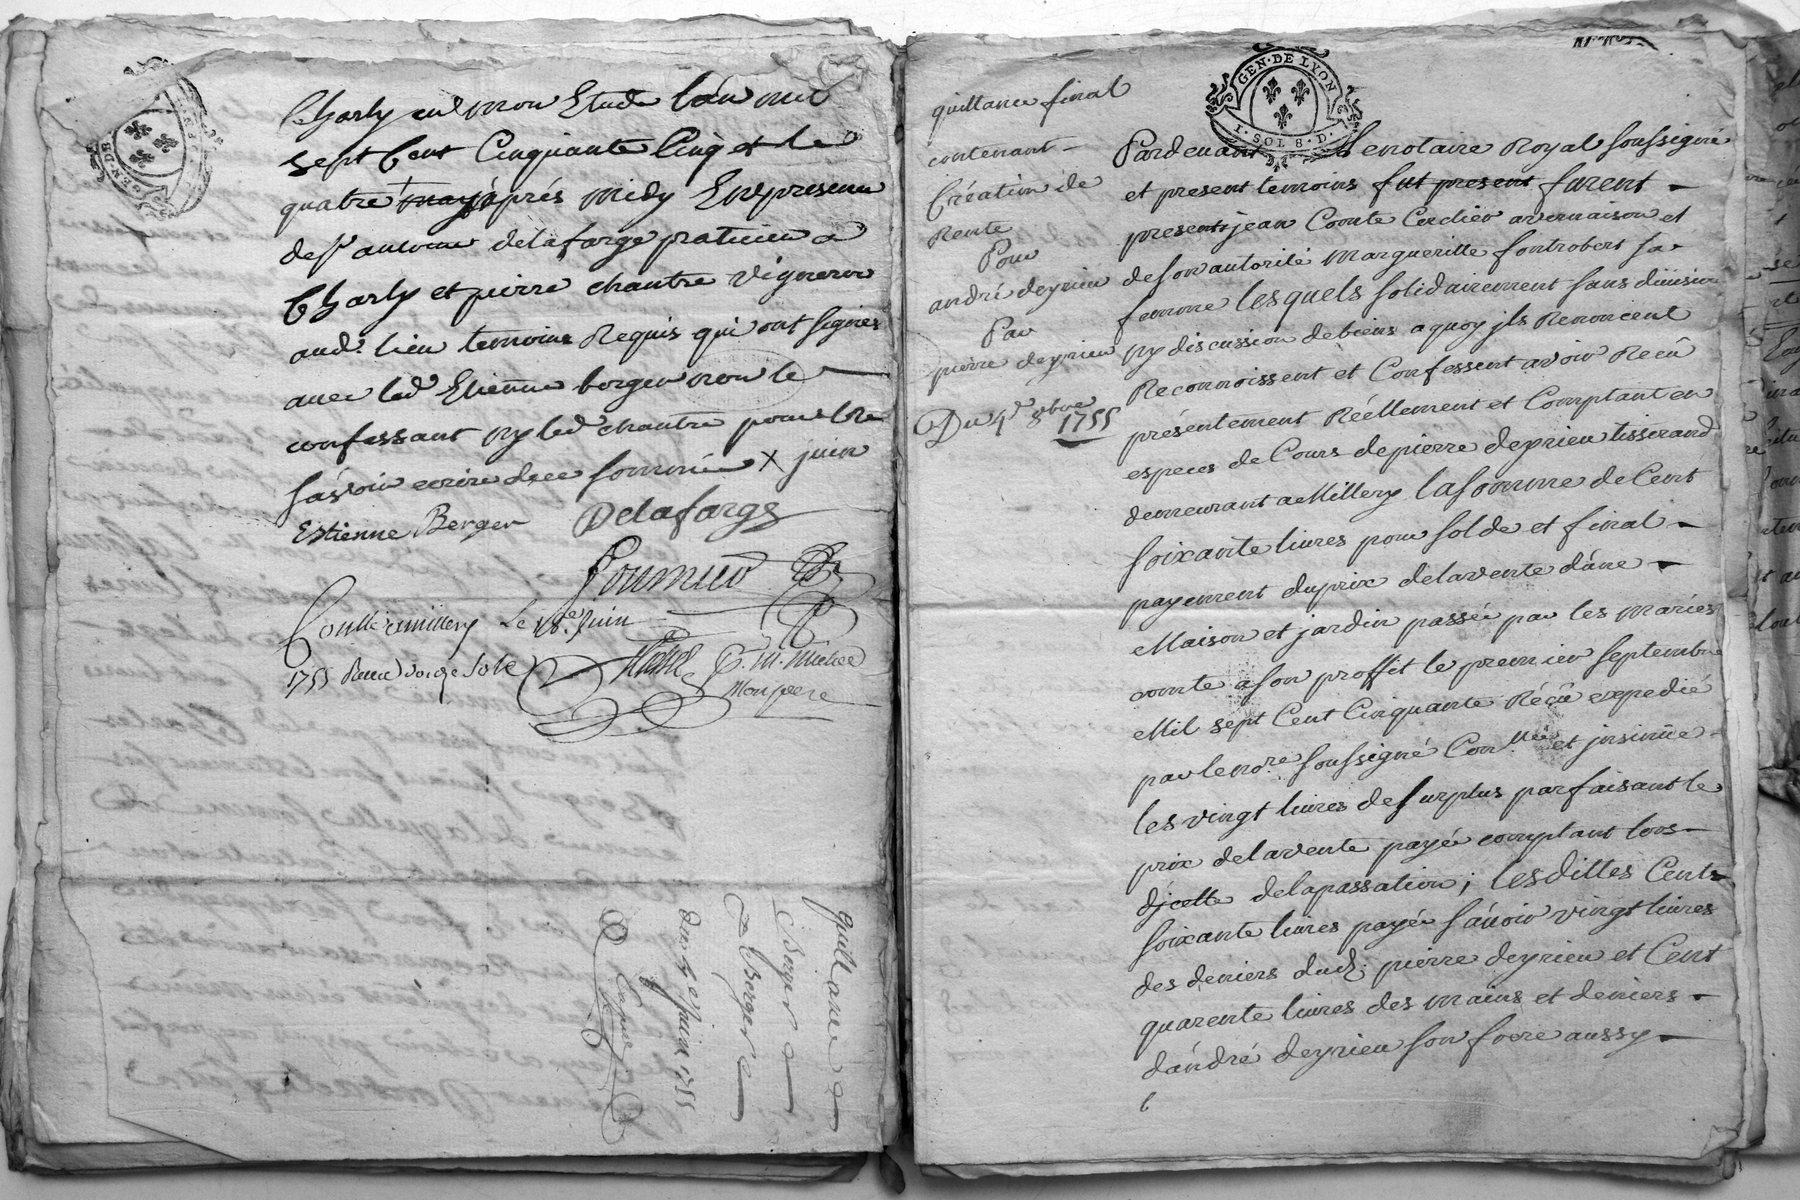 Charly en mon Etude l'an mil
sept Cent Cinquante Cinq et le
quatre may après midy En presence
de Sr antoine delafarge praticien a
Charly et pierre chantre Vigneron
aud. lieu temoins Requis qui ont signés
avec led Etienne berger non le
confessant ny led chantre pour ne
sçavoir ecrire de ce sommé X juin
Estienne Berger Delafarge
Conllé a millery Le 18e Juin
1755 Reçu douze sols
Mon pere
quittance
Berger
Bergere
du 4e Juin 1755
GEN. DE
quittance final
contenant
Création de
Rente
Pour
andré deyrieu
Par
pierre deyrieu
Du 4e 8bre 1755
GEN. DE LYON
1. SOL 8. D.
Pardevant le notaire Royal soussigné
et present temoins fut present furent
presents jean Comte Cordier a vernaison et
de son autorité Margueritte fontrobert sa
femme lesquels solidairement sans division
ny discussion de biens a quoy ils Renoncent
Reconnoissent et Confessent avoir Reçû
présentement Réellement et Comptant en
especes de Cours de pierre deyrieu tisserand
demeurant a Millery la somme de Cent
soixante livres pour solde et final
payement du prix de la vente d'une
Maison et jardin passée par les mariés
comte a son proffit le premier septembre
Mil sept Cent Cinquante Réçû expedié
par le nore. soussigné Conllée et insinüe
les vingt livres de surplus parfaisant le
prix de la vente payé comptant lors
d'icelle de la passation; lesdittes Cent
soixante livres payée sçavoir vingt livres
des deniers dud. pierre deyrieu et Cent
quarente livres des mains et deniers
d'andré deyrieu son frere aussy